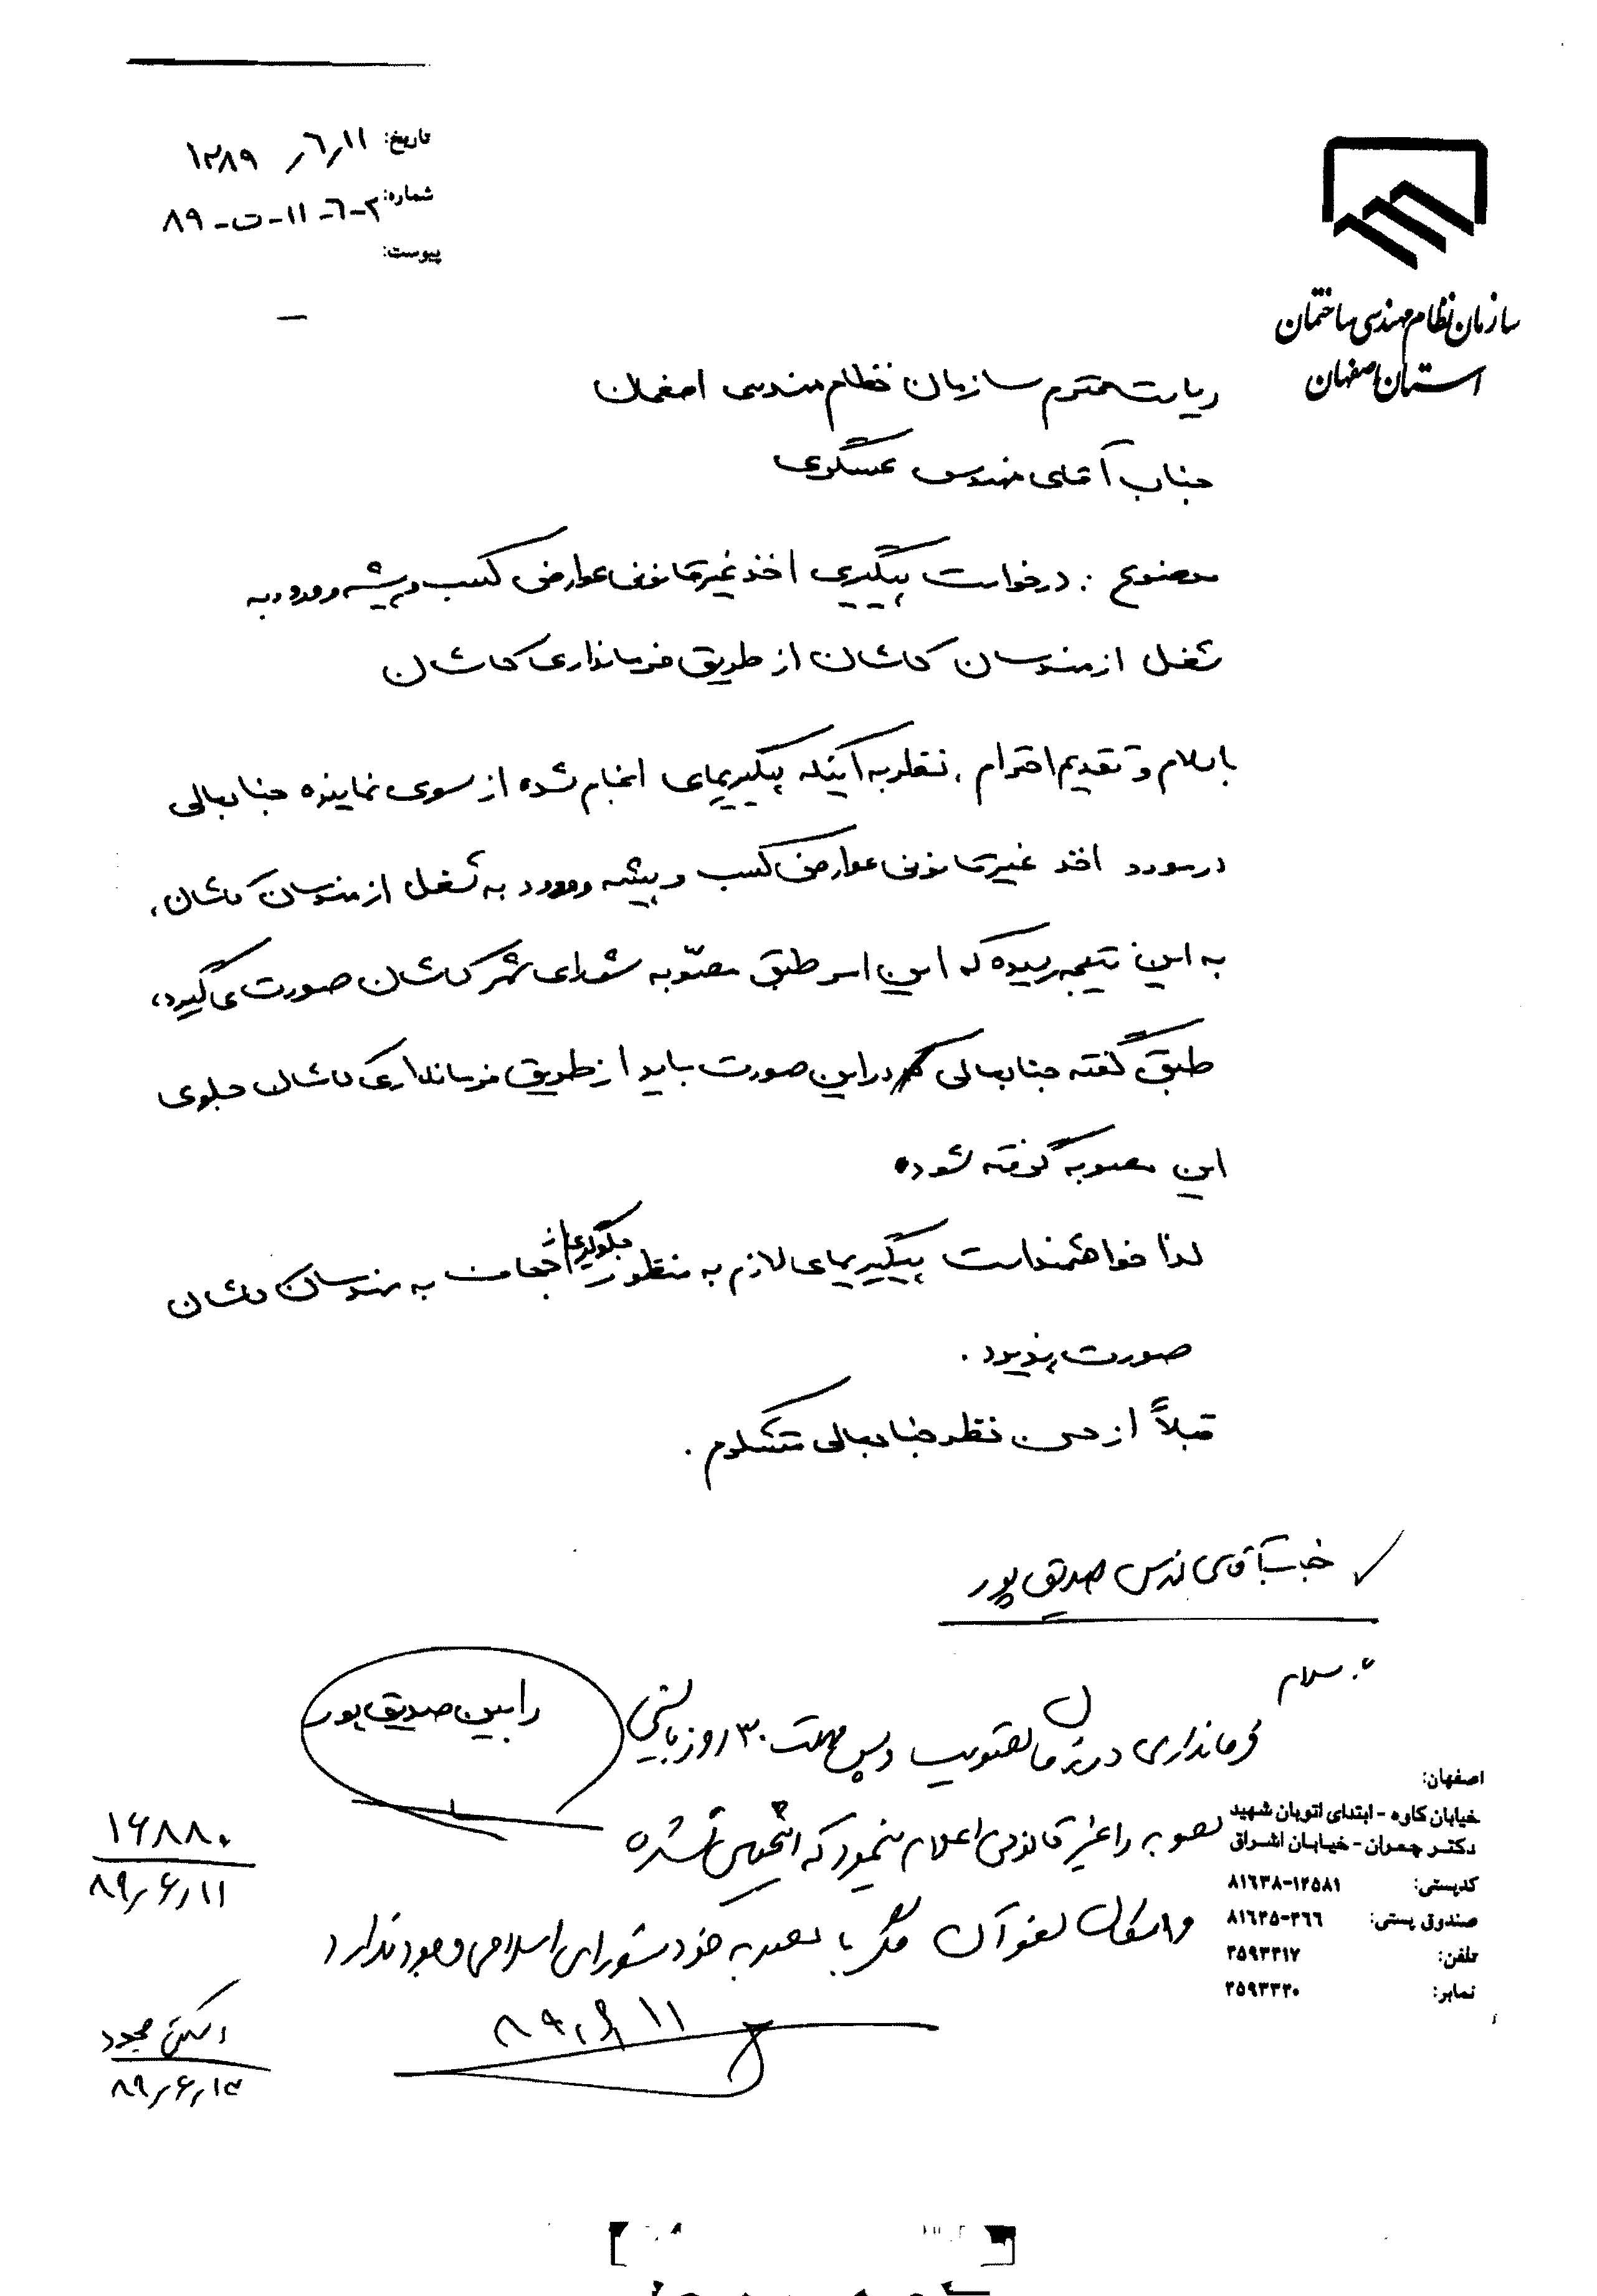 تاریخ: ۱۳۸۹/۶/۱۱
شماره: ۳-۶-۱۱-ت-۸۹
پیوست:
—
سازمان نظام مهندسی ساختمان
استان اصفهان
ریاست محترم سازمان نظام مهندسی اصفهان
جناب آقای مهندس عسگری
موضوع : درخواست پیگیری اخذ غیرقانونی عوارض کسب و پیشه و ورود به
شغل از مهندسان کاشان از طریق فرمانداری کاشان
با سلام و تقدیم احترام ، نظر به آنیکه پیگیریهای انجام شده از سوی نماینده جنابعالی
در مورد اخذ غیرقانونی عوارض کسب و پیشه و ورود به شغل از مهندسان کاشان،
به این نتیجه رسیده که این امر طبق مصوّبه شورای شهر کاشان صورت می‌گیرد،
طبق گفته جنابعالی در این صورت باید از طریق فرمانداری کاشان جلوی
این مصوبه گرفته شود.
لذا خواهشمند است پیگیریهای لازم به منظور جلوگیری از اجحاف به مهندسان کاشان
صورت پذیرد.
قبلاً از حسن نظر جنابعالی متشکرم.
جناب آقای مهندس صدیق پور
با سلام
رامین صدیق پور
فرمانداری در زمان تصویب و پس مهلت ۳۰ روز بایستی
مصوبه را غیر قانونی اعلام مینمود که انجام نشده
و امکان لغو آن مگر با مصوبه خود شورای اسلامی وجود ندارد
۸۹/۶/۱۱
۱۶۸۸۰
۸۹/۶/۱۱
۸۹/۶/۱۳
اصفهان:
خیابان کاوه - ابتدای اتوبان شهید
دکتر چمران - خیابان اشراق
کدپستی: ۸۱۶۳۸-۱۲۵۸۱
صندوق پستی: ۸۱۶۴۵-۳۶۶
تلفن: ۴۵۹۳۳۱۷
نمابر: ۴۵۹۳۳۲۰